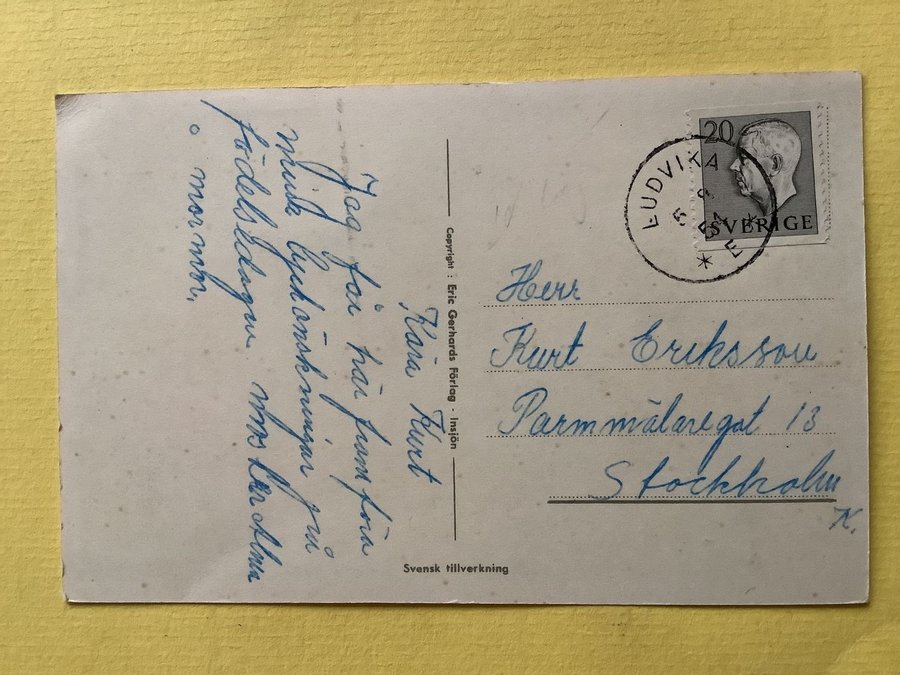 Kära Kurt
Jag får här framföra
mina lyckönskningar på
födelsedagen moster Alma
o mormor.
Copyright: Eric Gerhards Förlag - Insjön
Svensk tillverkning
20
SVERIGE
LUDVIKA
5 9
54
E
Herr
Kurt Eriksson
Parmmätaregat 13
Stockholm
K.